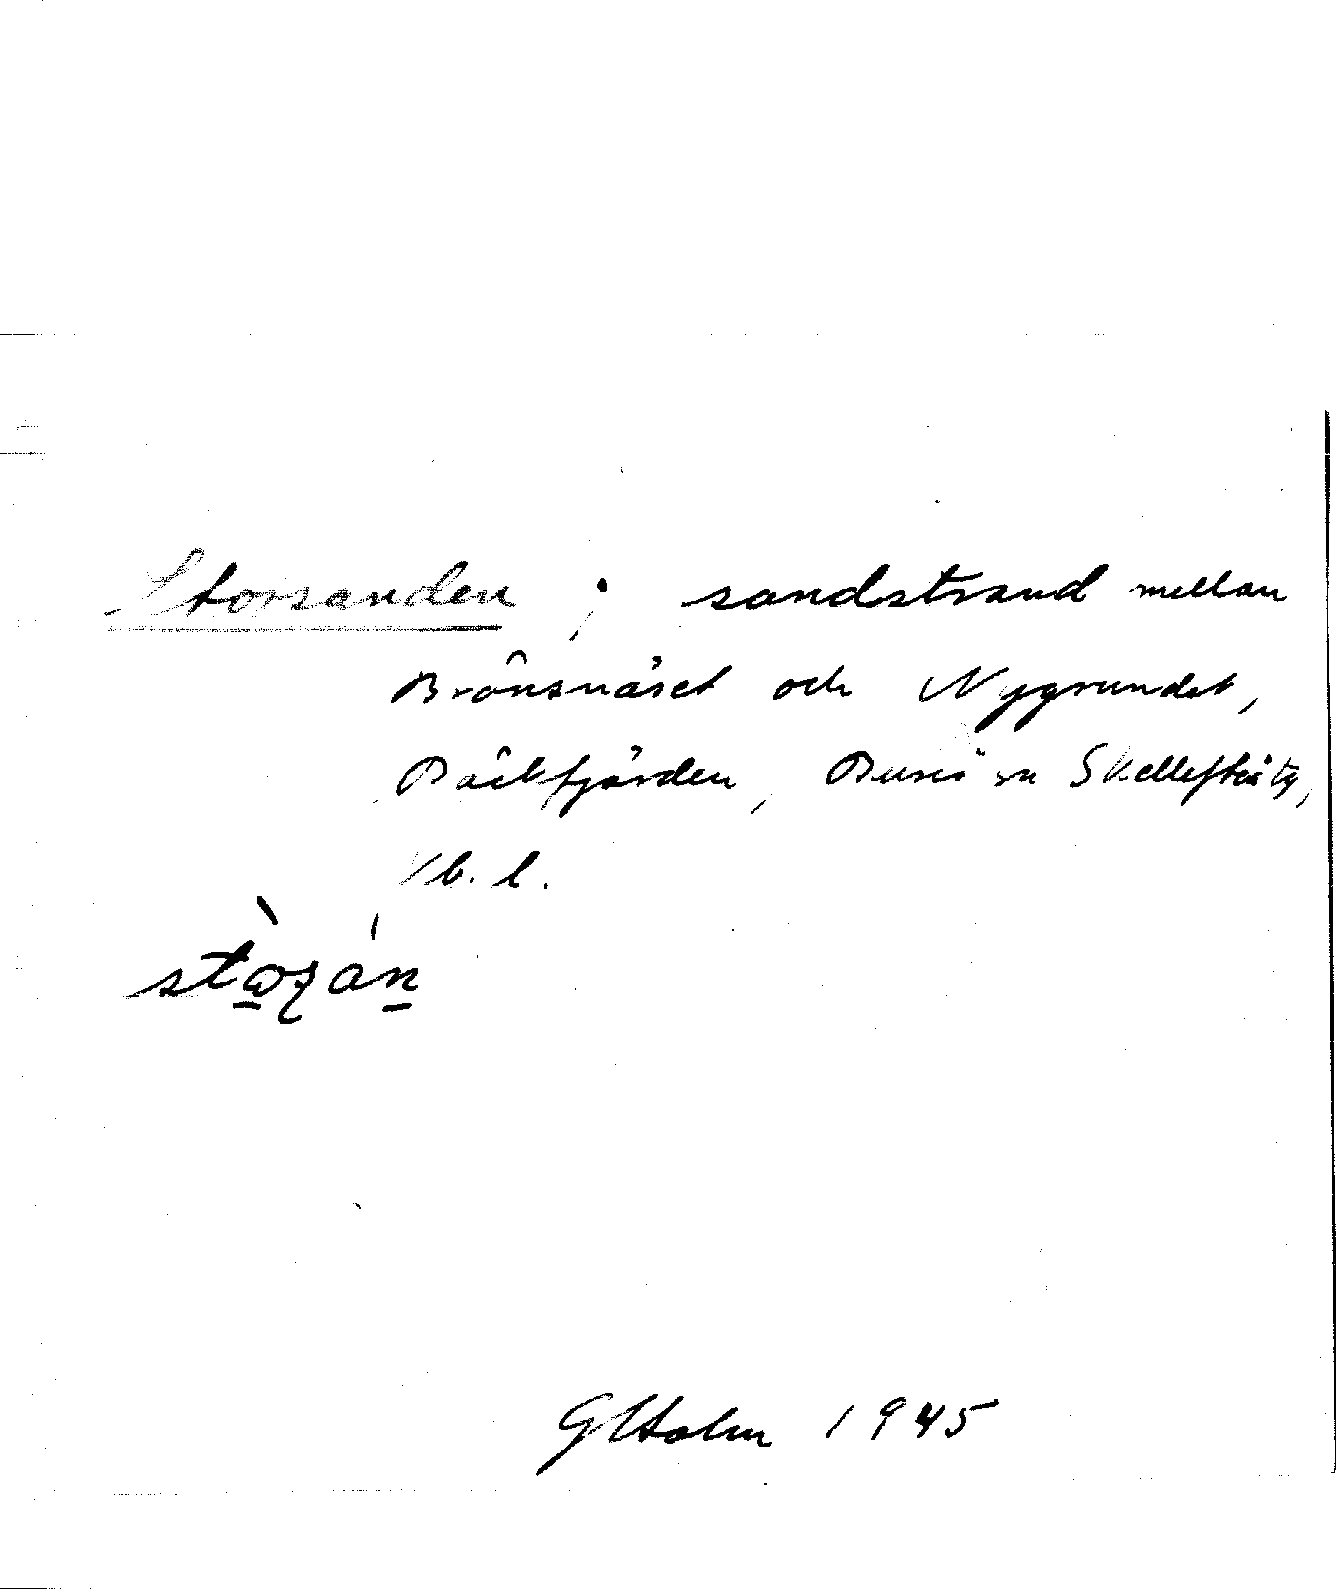 Storsanden ; sandstrand mellan
Brönsnäset och Nygrundet,
Bäckfjärden, Bureå sn Skellefteå tg,
Vb. l.
GHolm 1945